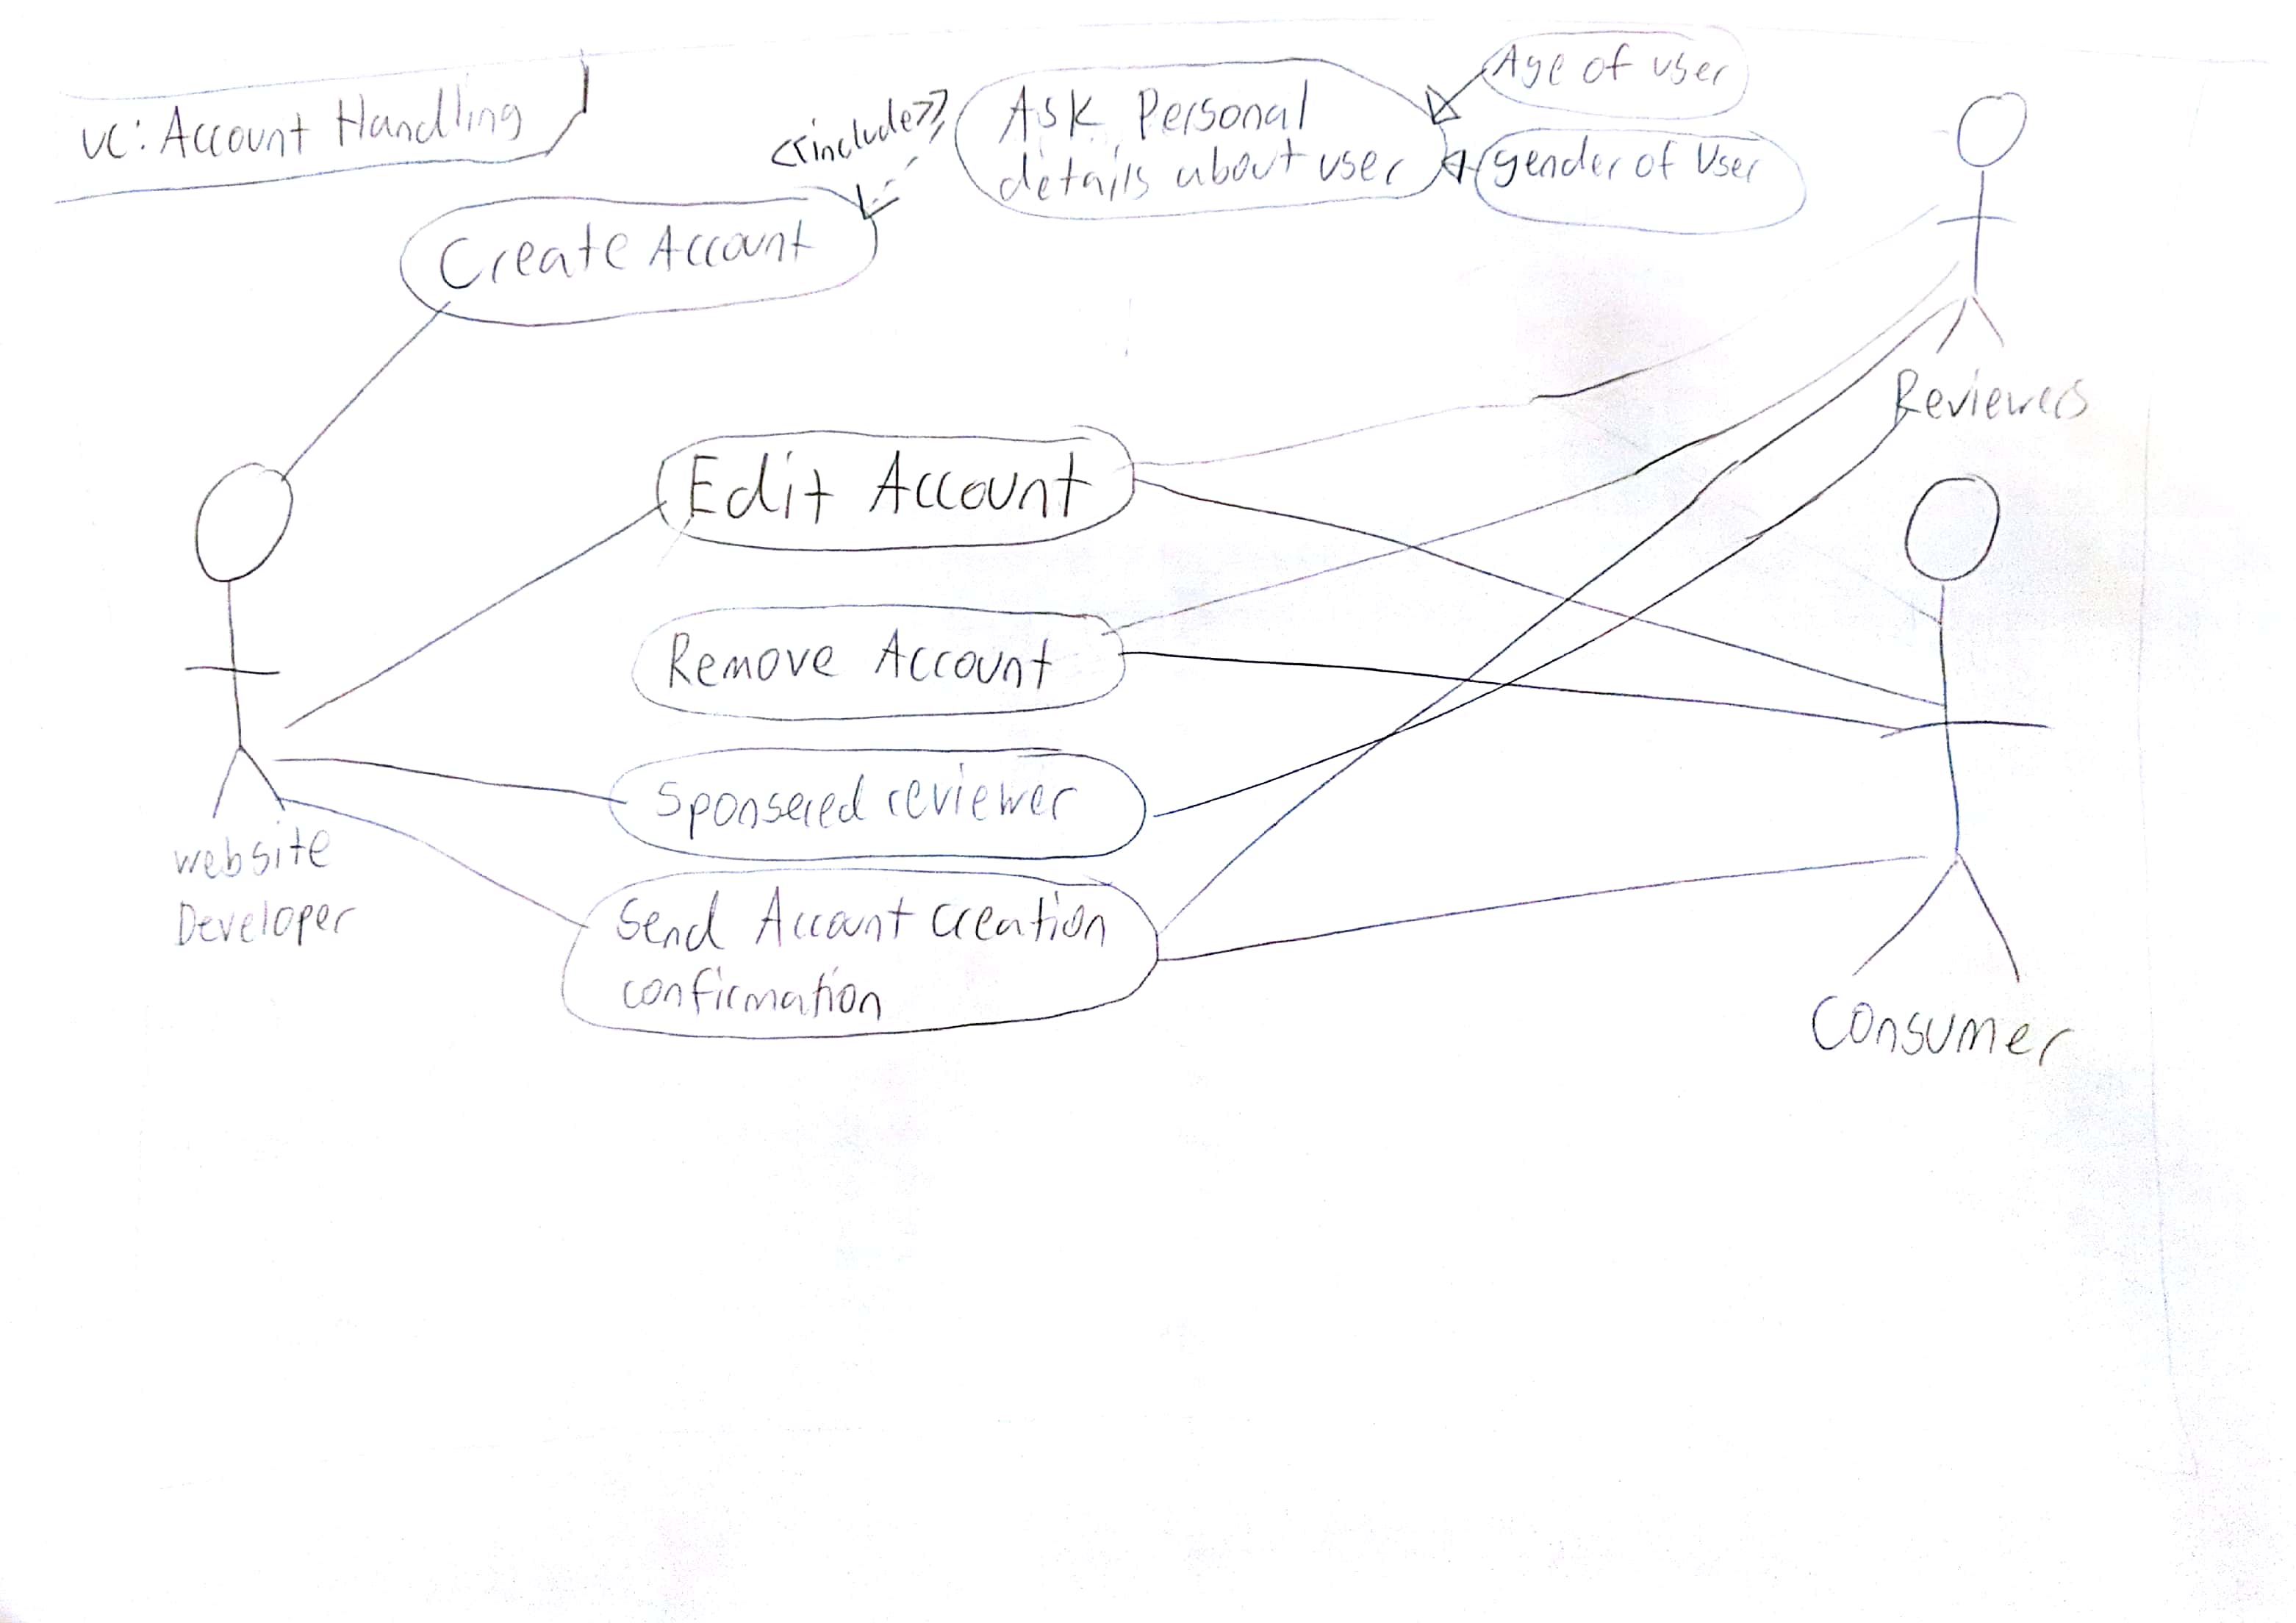 uc: Account Handling
<<include>>
Ask Personal
details about user
Age of user
gender of User
Create Account
Reviewers
Edit Account
Remove Account
Sponsered reviewer
website
Developer
Send Account creation
confirmation
Consumer